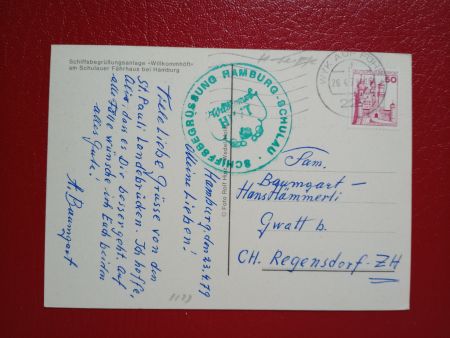 Schiffsbegrüßungsanlage »Willkommhöft«
am Schulauer Fährhaus bei Hamburg
Hamburg, den 23.4.79
Meine Lieben!
Viele liebe Grüsse von den
St. Pauli Landebrücken. Ich hoffe,
Alice, dass es Dir besser geht. Auf
alle Fälle wünsche ich Euch beiden
alles Gute!
A. Baumgart
SCHIFFSBEGRÜSSUNG HAMBURG-SCHULAU
© Foto Rolf
WYK AUF FÖHR
50
Fam.
Baumgart-
Hans Hämmerli
Gwatt b.
CH. Regensdorf-ZH